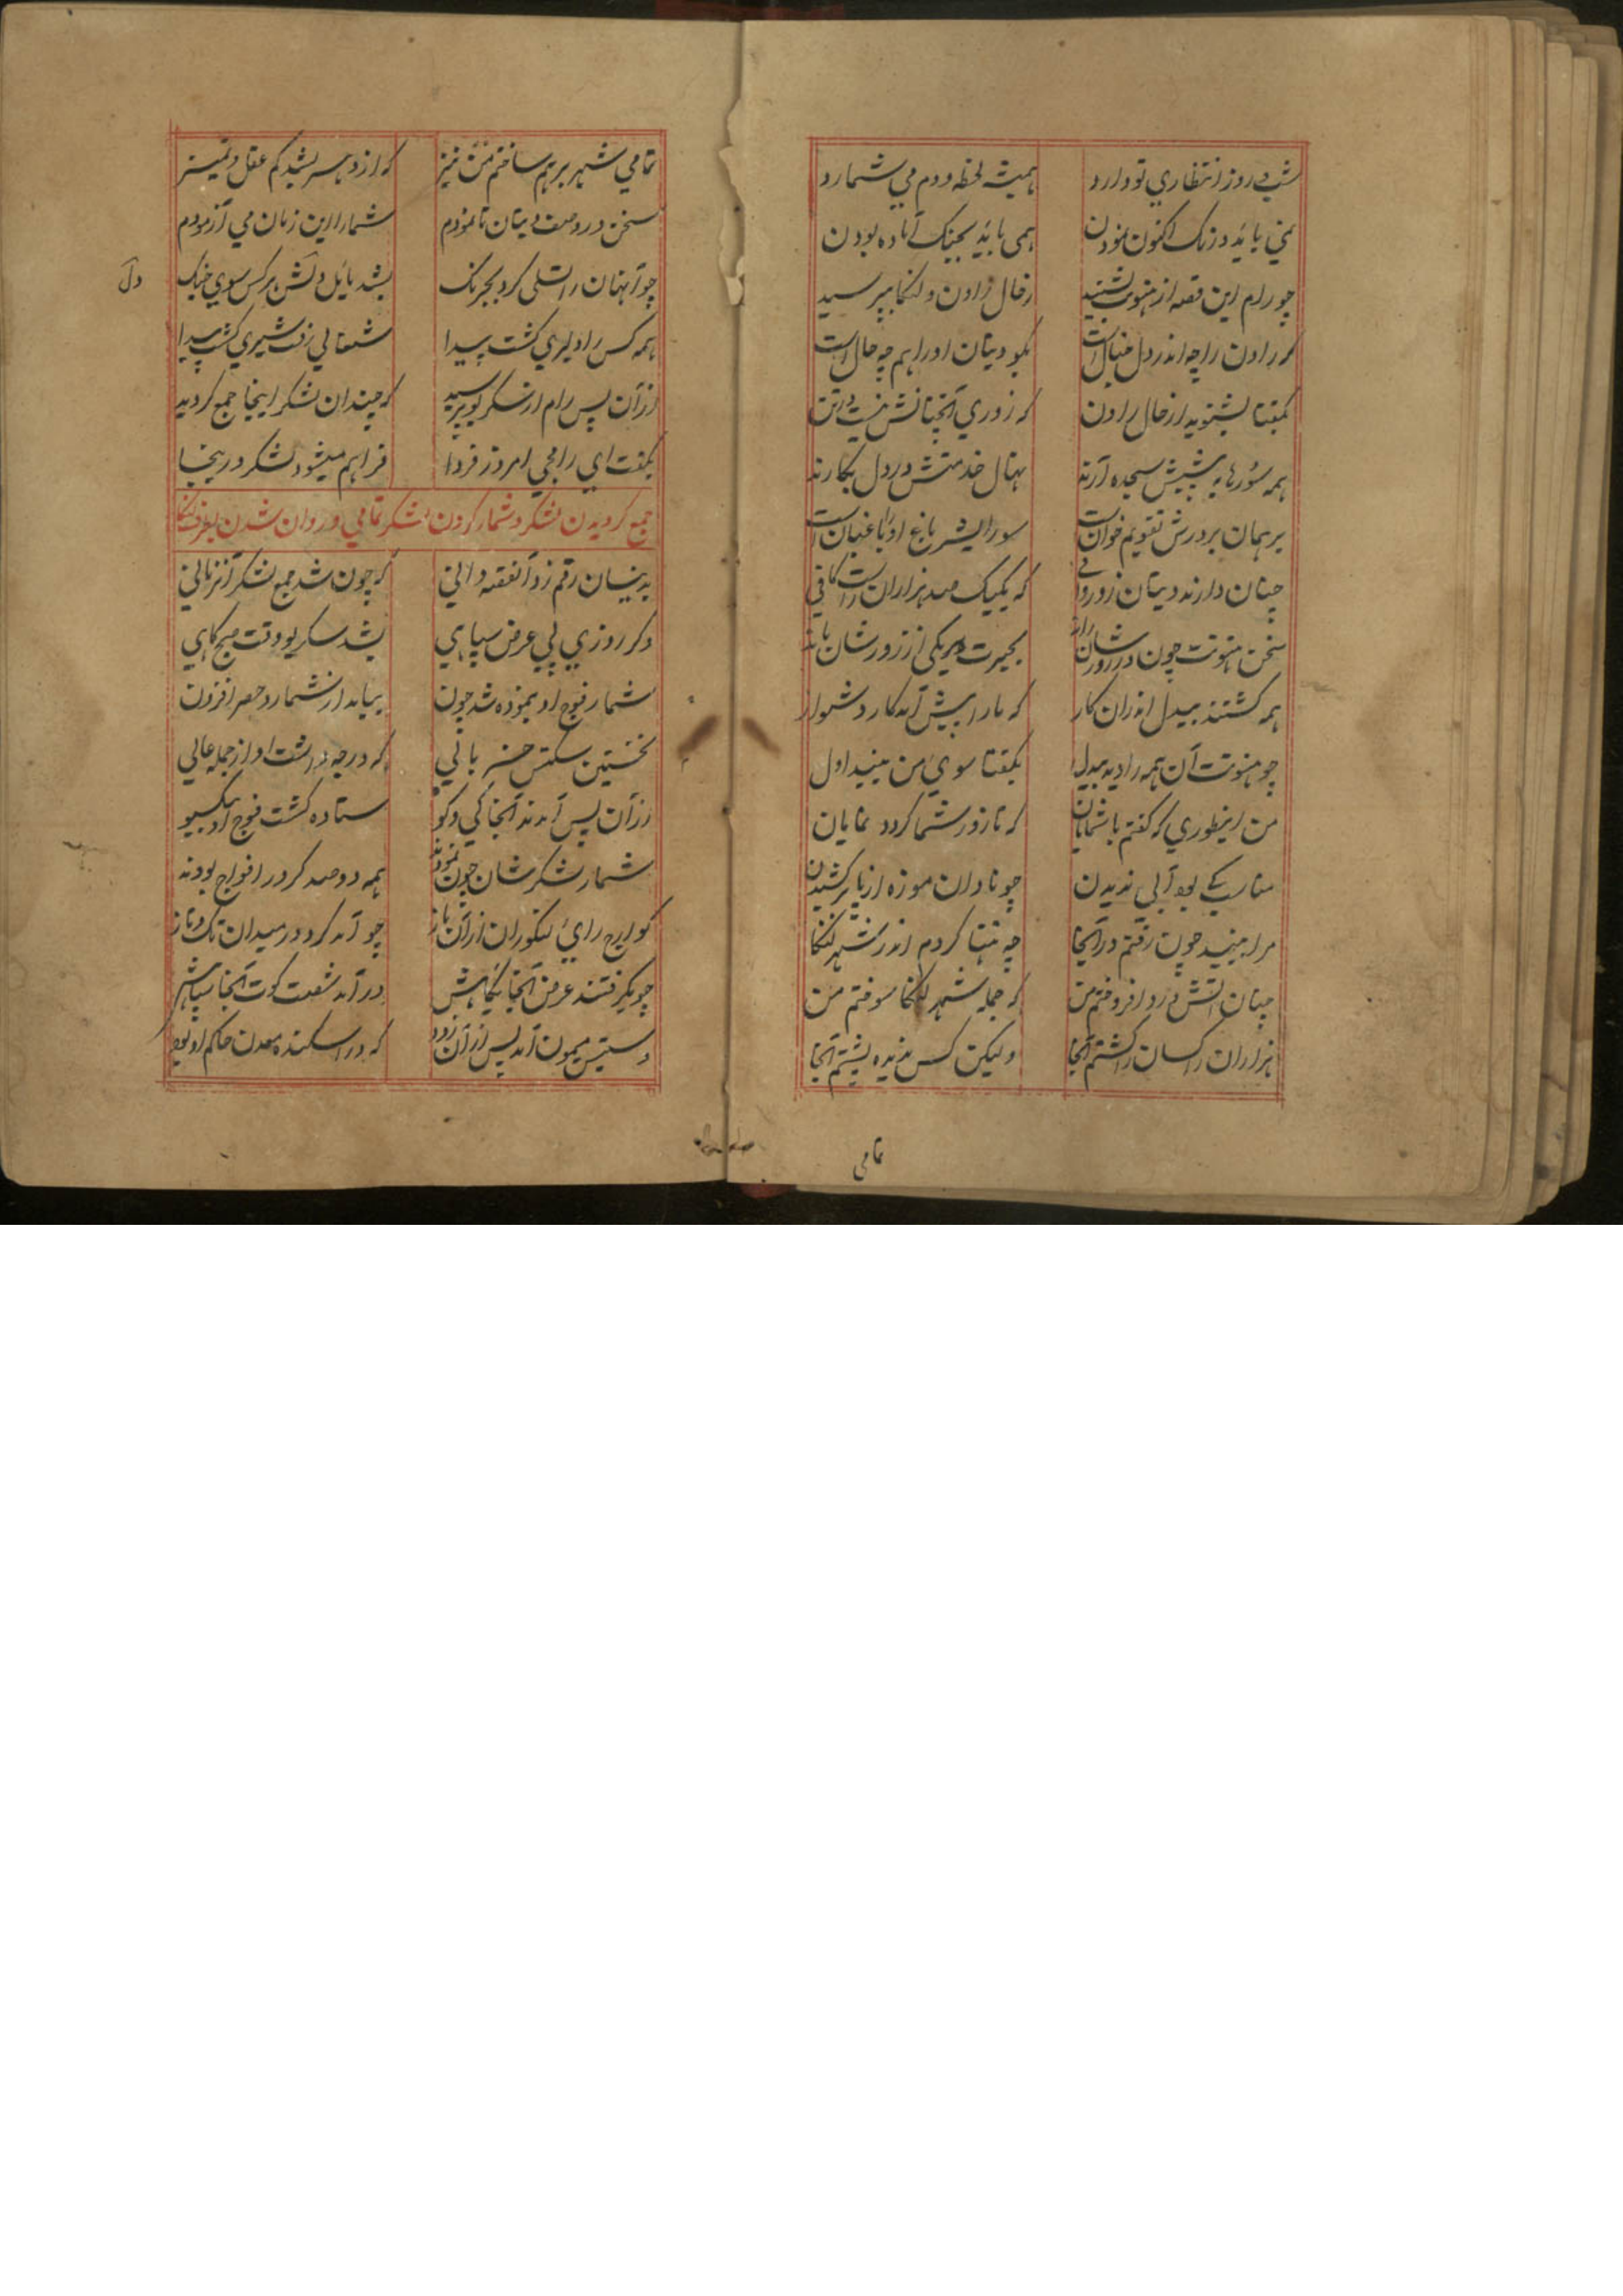 شب و روز انتظاری تو دارد همیشه لحظه و دم می شمارد
نمی باید درنک اکنون نمودن همی باید بجنک آماده بودن
چو رام این قصه از هنونت بشنید ز حال راون و لنکا بپرسید
که راون را چه اندر دل خیال است بکو دیتان او را هم چه حال است
بکفتا بشنوید از حال راون که زوری آنچنانش نیست در تن
همه سورها به پیشش سجده آرند نهال خدمتش در دل بکارند
برهمان بر درش تقویم خوان است سورایشر باغ او را باغبان است
چنان دارند دیتان زور وافی که یکیک صد هزاران راست کافی
سخن هنونت چون در زورشان راند بحیرت هر یکی از زورشان ماند
همه کشتند بیدل اندران کار که ما را پیش آمد کار دشوار
چو هنونت آن همه را دید بیدل بکفتا سوی من بینید اول
من اینطوری که کفتم با شمایان که تا زور شما کردد نمایان
مناسب کے بود آبی ندیدن چو نادان موزه از پا بر کشیدن
مرا بینید چون رفتم در آنجا چه تنها کردم اندر شهر لنکا
چنان آتش درو افروختم من که جمله شهر لنکا سوختم من
هزاران راکسان را کشتم آنجا ولیکن کس ندیده پشتم آنجا
تمامی
تمامی شهر برهم ساختم من نیز که از دهسر بشد کم عقل و تمییز
سخن در وصف دیتان تا نمودم شما را این زمان می آزمودم
چو آنهان را تسلی کرد بجرنک بشد مایل دلش هر کس سوی جنک
دل
همه کس را دلیری کشت پیدا شغالی رفت شیری کشت پیدا
از آن پس رام از سکریو پرسید که چندان لشکر اینجا جمع کردید
بکفت ای رامجی امروز فردا فراهم میشود لشکر در ینجا
جمع کردیدن لشکر و شمار کردن لشکر تمامی و روان شدن بطرف لنکا
بدینسان رقم زد آنقصه دانی که چون شد جمع لشکر آنزمانی
دکر روزی پی عرض سپاهی بشد سکریو وقت صبح کاهی
شمار فوج او بنموده شد چون بیامد از شمار و حصر افزون
نخستین سکتس خسر بالی که درجه داشت او از جمله عالی
از آن پس آمدند آنجا کی و کو ستاده کشت فوج او بیکسو
شمار لشکرشان چون نمودند همه دو صد کرور افواج بودند
کواج رای لنکوران از آن باز چو آمد کرد در میدان تک و تاز
چو بکرفتند عرض آنجا یکایکش در آمد شصت کوت آنجا سپاهش
دستیس میمون آمد پس از آن زود که در اسکنده معدن حاکم او بود